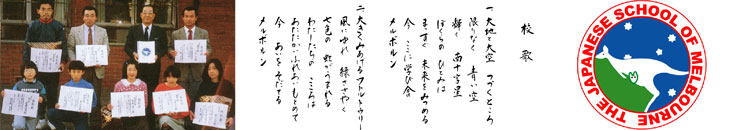 THE JAPANESE SCHOOL OF MELBOURNE
校歌
一、大地と大空 つづくところ
限りなく 青い空
輝く 南十字星
ぼくらの ひとみは
まっすぐ 未来をみつめる
今 ここに学び舎
メルボルン
二、大きくみあげる ワトルトゥリー
風にゆれ 緑ささやく
七色の 虹がうまれる
わたしたちの こころは
あたたかい ふれあいをもとめて
今 あいを そだてる
メルボルン